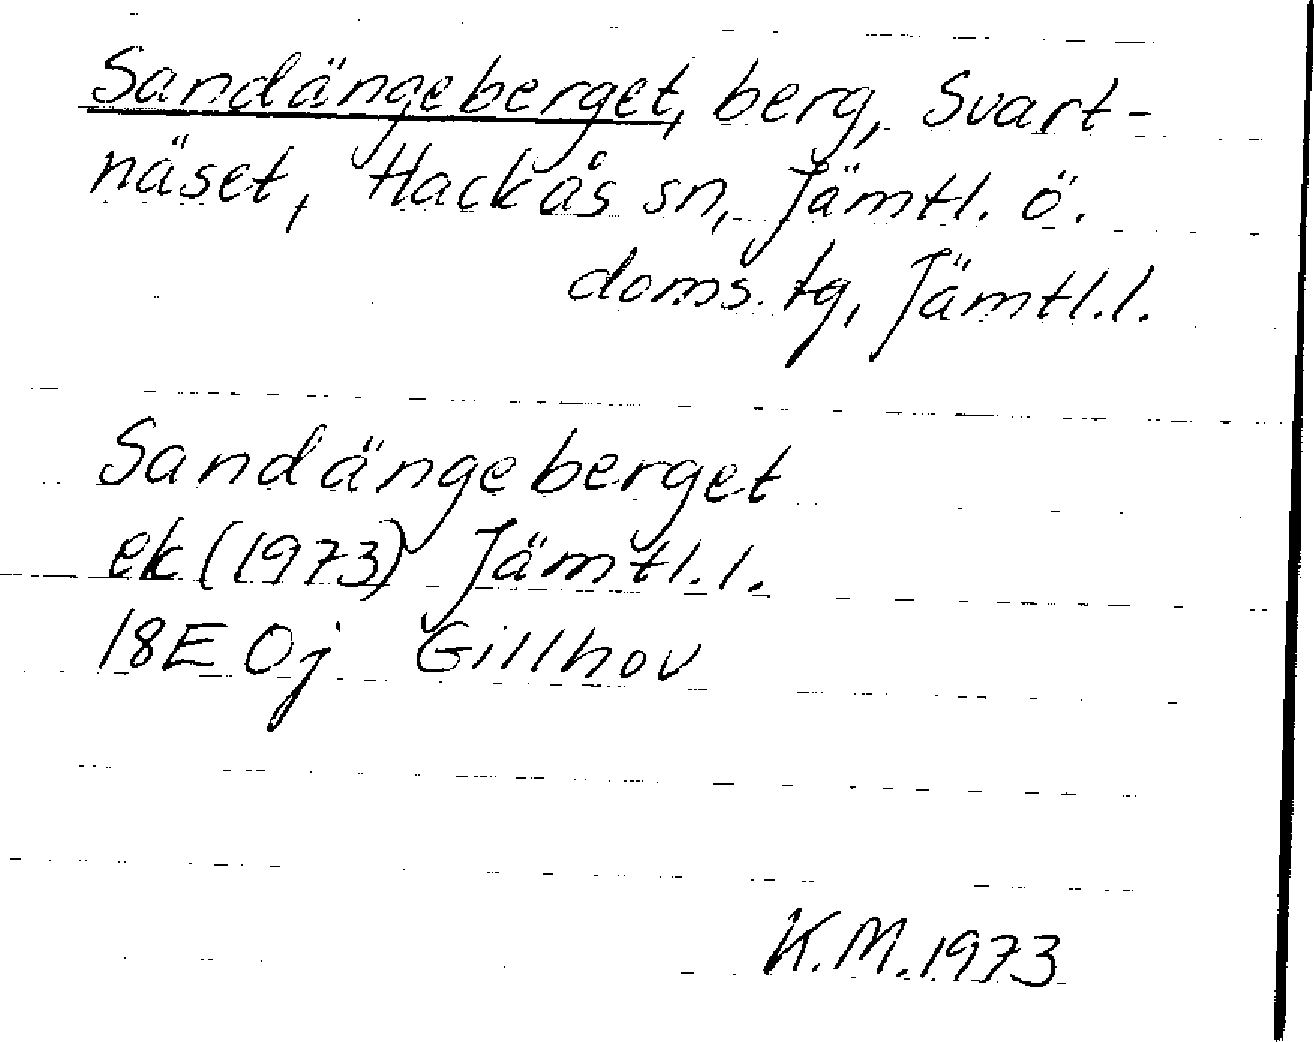 Sandängeberget, berg, Svart-
näset, Hackås sn, Jämtl. ö.
doms.tg, Jämtl.l.
Sandängeberget
ek (1973) Jämtl.l.
18E 0j Gillhov
K.M. 1973